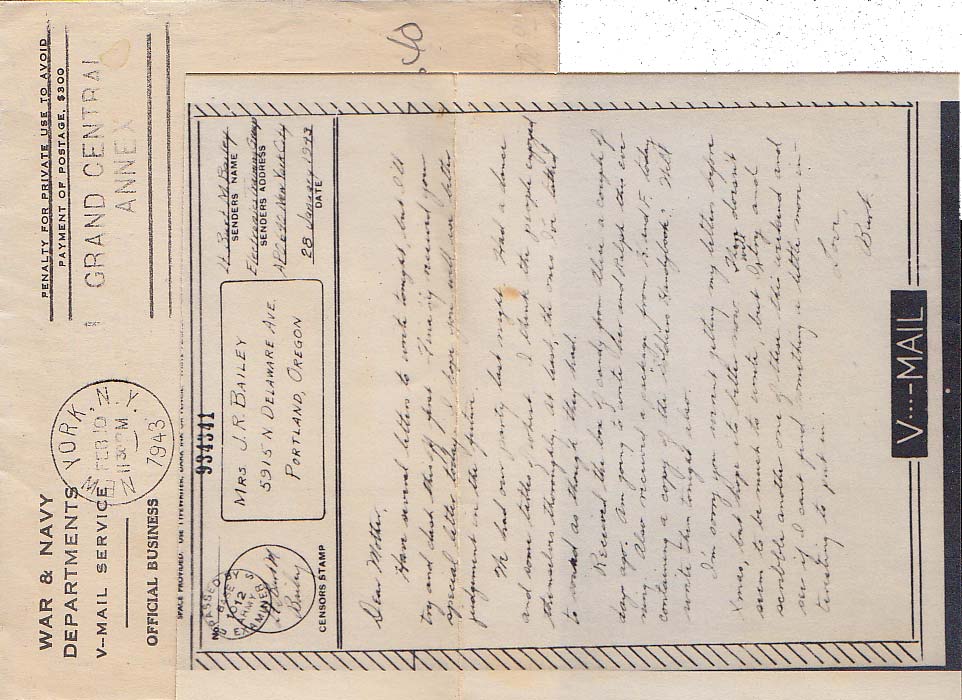 WAR & NAVY
DEPARTMENTS
V-MAIL SERVICE
OFFICIAL BUSINESS
NEW YORK, N.Y.
FEB 10
11 30 PM
1943
PENALTY FOR PRIVATE USE TO AVOID
PAYMENT OF POSTAGE, $300
GRAND CENTRAL
ANNEX
934341
No.
PASSED BY
BASE
1012
ARMY
EXAMINER
Bailey
CENSORS STAMP
MRS J.R. BAILEY
5915 N DELAWARE AVE.
PORTLAND, OREGON
Bailey
SENDERS NAME
Electronics Training Group
SENDERS ADDRESS
APO New York City
28 January 1943
DATE
Dear Mother,
Have several letters to write tonight, but I'll
try and dash this off first. Finally received your
special letter today. I hope you will use better
judgment in the future.
We had our party last night. Had a dance
and some tables of whist. I think the people enjoyed
themselves thoroughly, at least, the ones I've talked
to as though they had.
Received the box of candy from there a couple of
days ago. Am going to write her and Ralph this eve-
ning. Also received a package from B and F. today
containing a copy of the Soldiers Handybook. Will
write them tonight also.
I'm sorry you weren't getting my letters before
Xmas, but hope its better now. There doesn't
seem to be much to write, but I'll try and
scribble another one of these this weekend and
see if I can't find something a little more in-
teresting to put in
Love,
Burt.
V...-MAIL